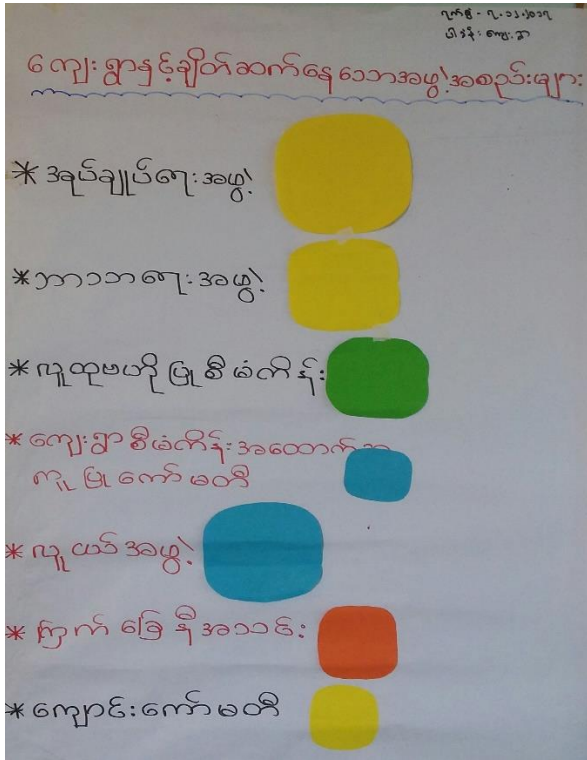 ရက်စွဲ - ၇.၁၁.၂၀၁၇
ကျေးရွာနှင့်ချိတ်ဆက်နေသောအဖွဲ့အစည်းများ
* အုပ်ချုပ်ရေးအဖွဲ့
* ဘာသာရေးအဖွဲ့
* လူထုဗဟိုပြုစီမံကိန်း
* ကျေးရွာစီမံကိန်းအထောက်အ
ကူပြုကော်မတီ
* လူငယ်အဖွဲ့
* ကြက်ခြေနီအသင်း
* ကျောင်းကော်မတီ